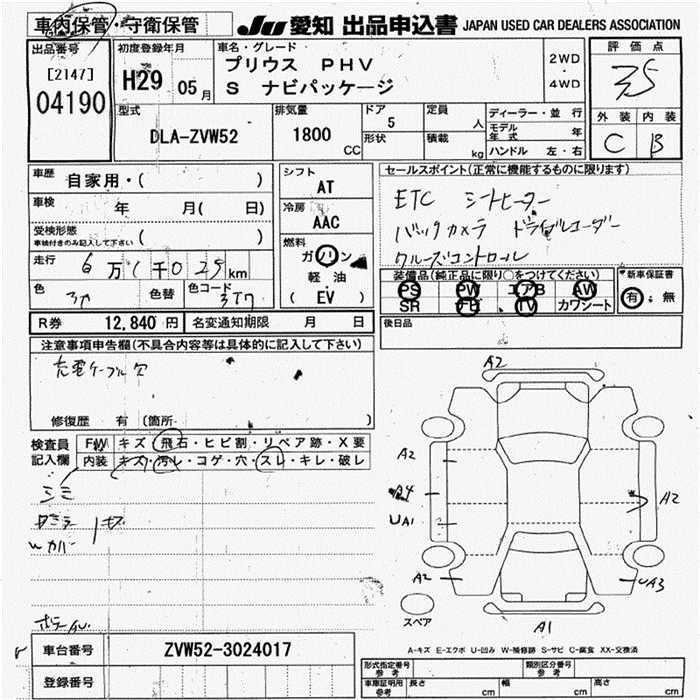 車内保管・守衛保管
JU 愛知 出品申込書 JAPAN USED CAR DEALERS ASSOCIATION
出品番号
[2147]
04190
初度登録年月
H29 05月
車名・グレード
プリウス PHV
S ナビパッケージ
2WD
・
4WD
評価点
3.5
外装 内装
C B
型式
DLA-ZVW52
排気量
1800 CC
ドア
5
形状
定員
人
積載
kg
ディーラー・並行
モデル年式 年
ハンドル 左・右
車歴 自家用・( )
車検 年 月( 日)
受検形態
車検付きのみ記入して下さい ( )
走行 6万1千025km
色 色替 色コード
シフト
AT
冷房
AAC
燃料
ガソリン
軽油
(EV)
セールスポイント(正常に機能するものに限ります)
ETC シートヒーター
バックカメラ ドライブレコーダー
クルーズコントロール
装備品(純正品に限り○をつけてください)
PS PW エアB AW
SR ナビ TV カワシート
新車保証書
有・無
R券 12,840円 名変通知期限 月 日
後日品
注意事項申告欄(不具合内容等は具体的に記入して下さい)
充電ケーブル欠
修復歴 有 (箇所 )
検査員記入欄
FW キズ・飛石・ヒビ割・リペア跡・X要
内装 キズ・汚レ・コゲ・穴・スレ・キレ・破レ
A2
A2
A4
UA1
A2
A2
UA3
A1
スペア
A-キズ E-エクボ U-凹み W-補修跡 S-サビ C-腐食 XX-交換済
車台番号 ZVW52-3024017
登録番号
形式指定番号 参考
類別区分番号 参考
車庫証明用 参考 長さ cm 幅 cm 高さ cm